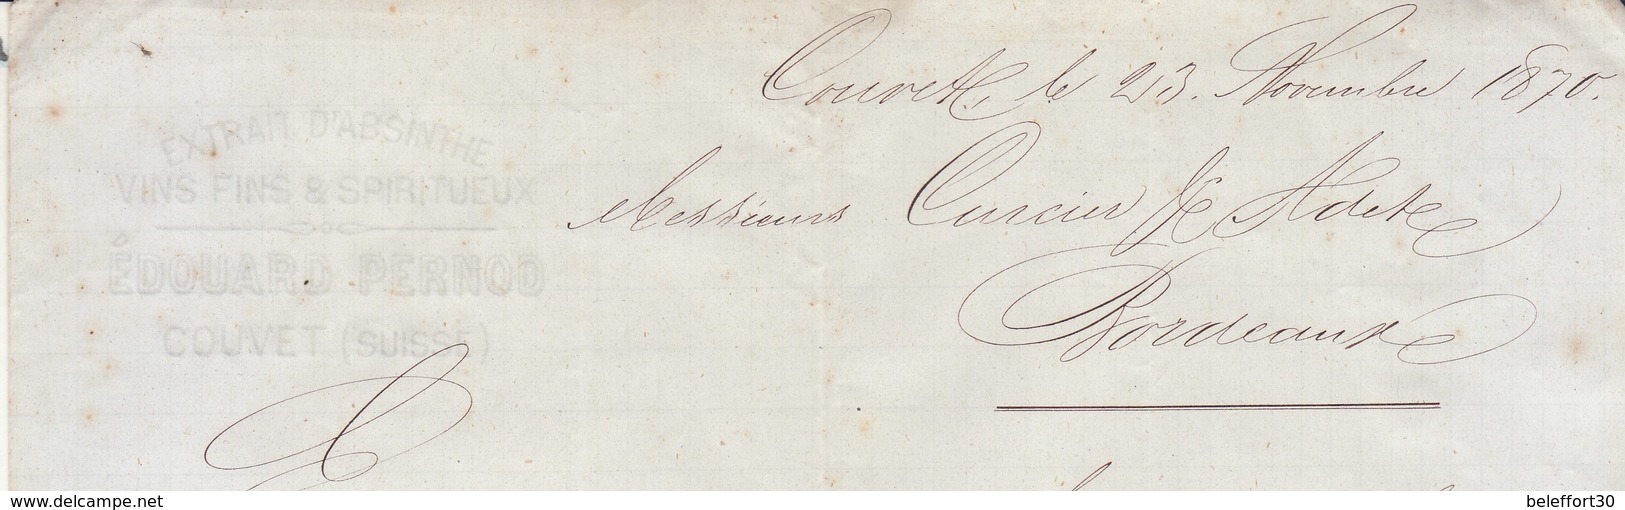 EXTRAIT D'ABSINTHE
VINS FINS & SPIRITUEUX
ÉDOUARD PERNOD
COUVET (SUISSE)
Couvet, le 23. Novembre 1870.
Messieurs Curcier & Adet
Bordeaux
www.delcampe.net
beleffort30